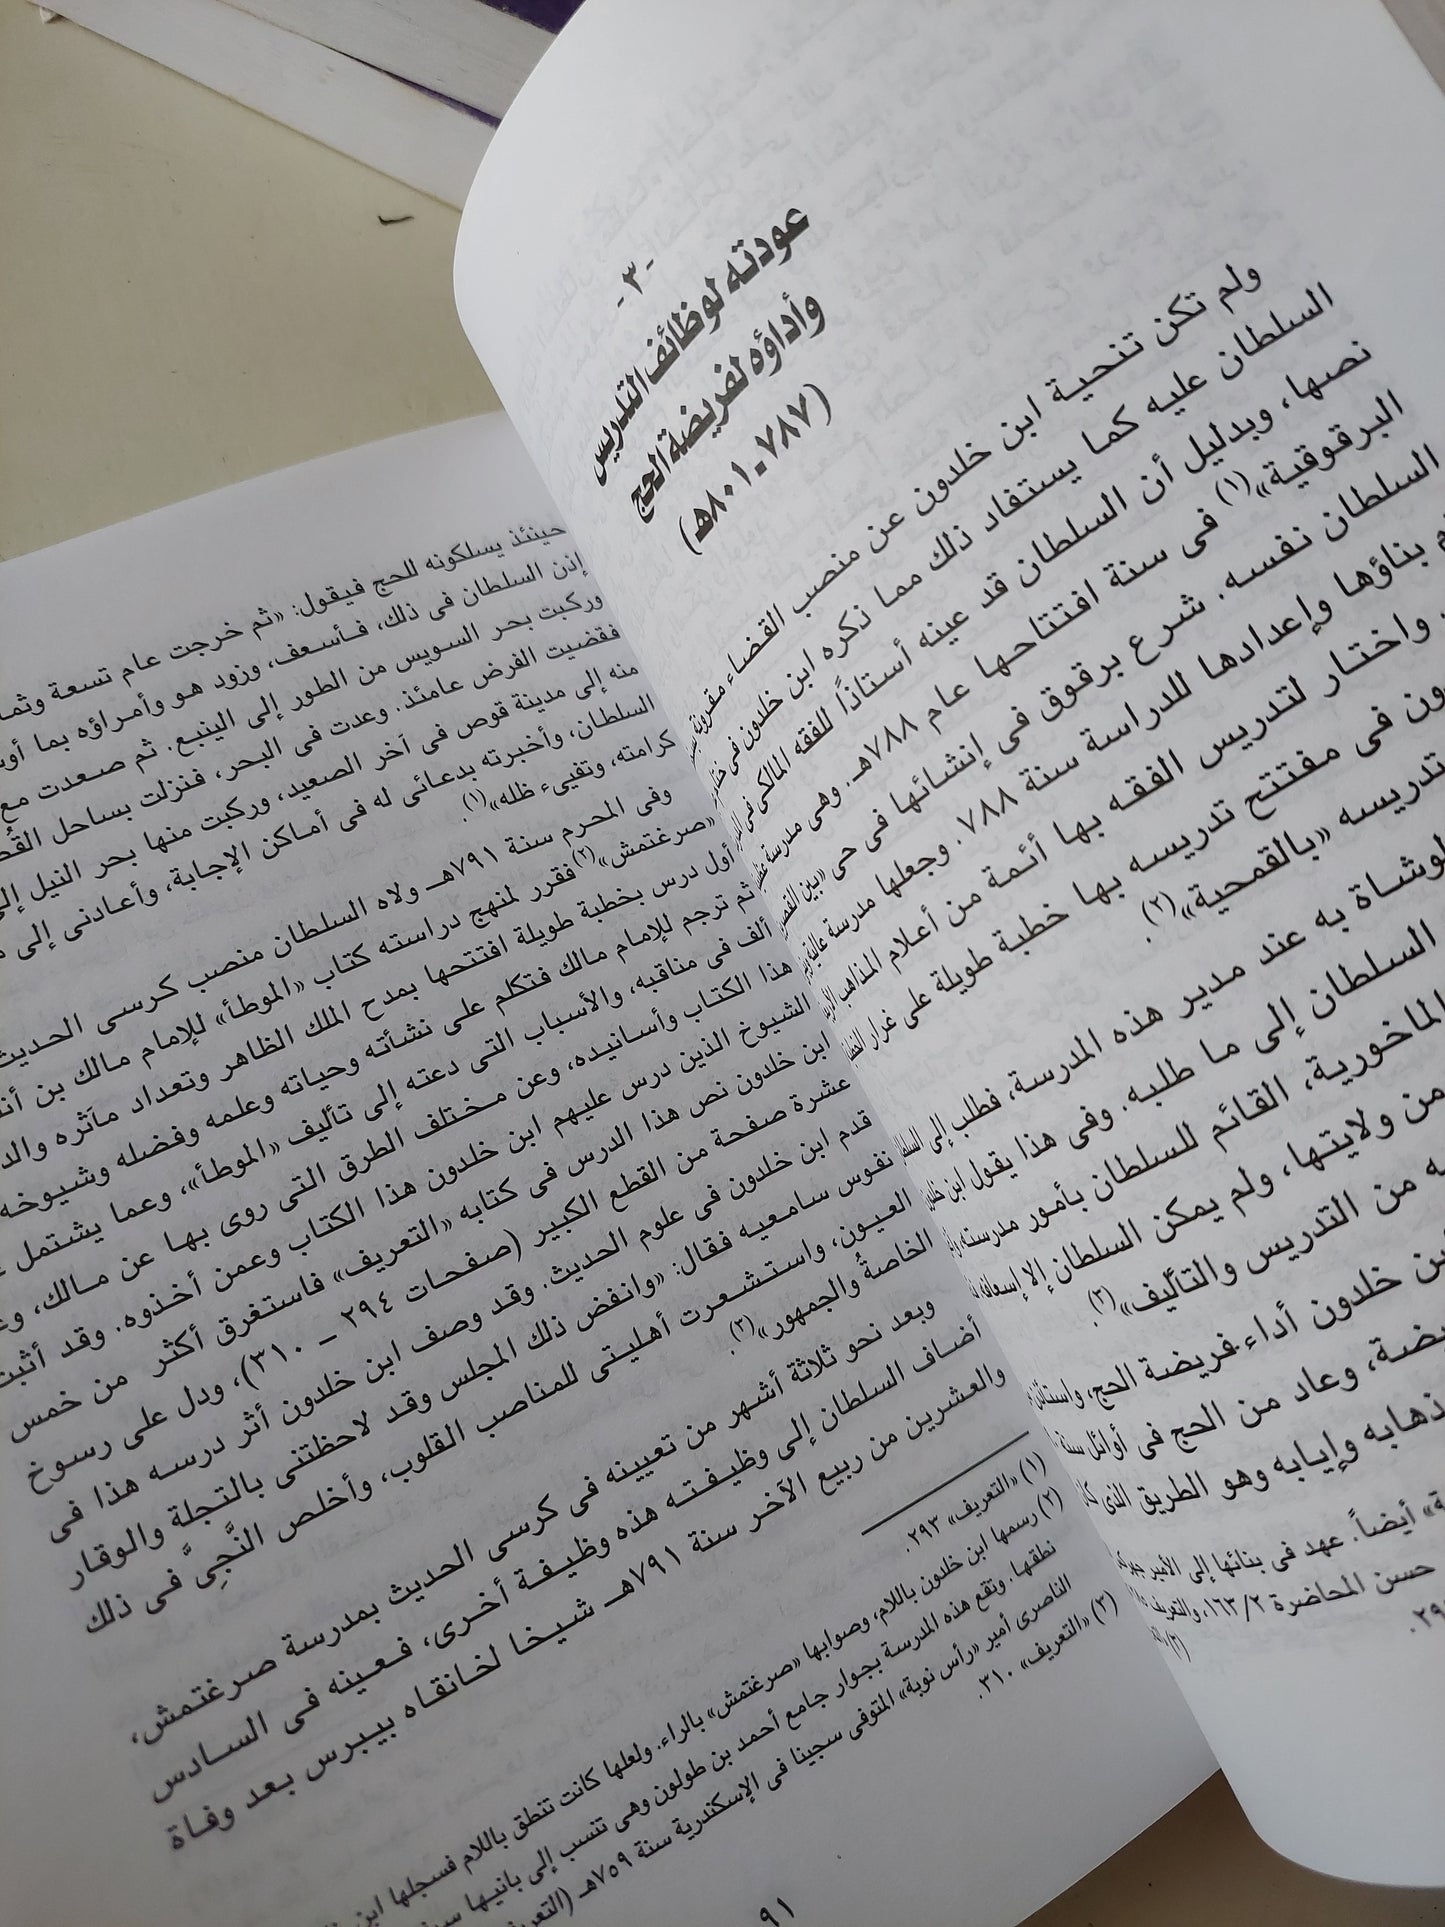 - ٣ -
عودته لوظائف التدريس
وأداؤه لفريضة الحج
(٧٨٧ - ٨٠١هـ)
ولم تكن تنحية ابن خلدون عن منصب القضاء مقرونة
السلطان عليه كما يستفاد ذلك مما ذكره ابن خلدون فى
نصها، وبدليل أن السلطان قد عينه أستاذاً للفقه المالكى فى
البرقوقية»(١) فى سنة افتتاحها عام ٧٨٨هـ. وهى مدرسة
السلطان نفسه. شرع برقوق فى إنشائها فى حى «بين
بناؤها وإعدادها للدراسة سنة ٧٨٨. وجعلها مدرسة عالية
واختار لتدريس الفقه بها أئمة من أعلام المذاهب
فى مفتتح تدريسه بها خطبة طويلة على غرار
تدريسه «بالقمحية»(٢).
به عند مدير هذه المدرسة، فطلب إلى
السلطان إلى ما طلبه. وفى هذا يقول ابن
الماخورية، القائم للسلطان بأمور مدرسته،
من ولايتها، ولم يمكن السلطان إلا إسعافه،
من التدريس والتأليف»(٣).
خلدون أداء فريضة الحج،
وعاد من الحج فى أوائل سنة
ذهابه وإيابه وهو الطريق الذى
أيضاً. عهد فى بنائها إلى الأمير
حسن المحاضرة ١٦٣/٢،
حينئذ يسلكونه للحج فيقول: «ثم خرجت عام تسعة
إذن السلطان فى ذلك، فأسعف، وزود هو وأمراؤه بما
وركبت بحر السويس من الطور إلى الينبع. ثم صعدت مع
فقضيت الفرض عامئذ. وعدت فى البحر، فنزلت بساحل
منه إلى مدينة قوص فى آخر الصعيد، وركبت منها بحر النيل
السلطان، وأخبرته بدعائى له فى أماكن الإجابة، وأعادنى إلى
كرامته، وتفيىء ظله»(١).
وفى المحرم سنة ٧٩١هـ ولاه السلطان منصب كرسى الحديث
«صرغتمش»(٢) فقرر لمنهج دراسته كتاب «الموطأ» للإمام مالك بن
أول درس بخطبة طويلة افتتحها بمدح الملك الظاهر وتعداد مآثره
ثم ترجم للإمام مالك فتكلم على نشأته وحياته وعلمه وفضله وشيوخه
ألف فى مناقبه، والأسباب التى دعته إلى تأليف «الموطأ»، وعما يشتمل
هذا الكتاب وأسانيده، وعن مختلف الطرق التى روى بها عن مالك،
الشيوخ الذين درس عليهم ابن خلدون هذا الكتاب وعمن أخذوه. وقد
ابن خلدون نص هذا الدرس فى كتابه «التعريف» فاستغرق أكثر من خمس
عشرة صفحة من القطع الكبير (صفحات ٢٩٤ ـ ٣١٠)، ودل على رسوخ
قدم ابن خلدون فى علوم الحديث. وقد وصف ابن خلدون أثر درسه هذا فى
نفوس سامعيه فقال: «وانفض ذلك المجلس وقد لاحظتنى بالتجلة والوقار
العيون، واستشعرت أهليتى للمناصب القلوب، وأخلص النَّجِىَّ فى ذلك
الخاصةُ والجمهور»(٣).
وبعد نحو ثلاثة أشهر من تعيينه فى كرسى الحديث بمدرسة صرغتمش،
أضاف السلطان إلى وظيفته هذه وظيفة أخرى، فعينه فى السادس
والعشرين من ربيع الآخر سنة ٧٩١هـ شيخا لخانقاه بيبرس بعد وفاة
(١) «التعريف» ٢٩٣.
(٢) رسمها ابن خلدون باللام، وصوابها «صرغتمش» بالراء. ولعلها كانت تنطق باللام فسجلها
نطقها. وتقع هذه المدرسة بجوار جامع أحمد بن طولون وهى تنسب إلى بانيها
الناصرى أمير «رأس نوبة» المتوفى سجينا فى الإسكندرية سنة ٧٥٩هـ
(٣) «التعريف» ٣١٠.
٩١